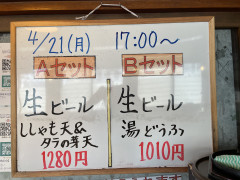 4/21(月) 17:00～
Aセット
生ビール
ししゃも天&
タラの芽天
1280円
Bセット
生ビール
湯どうふ
1010円